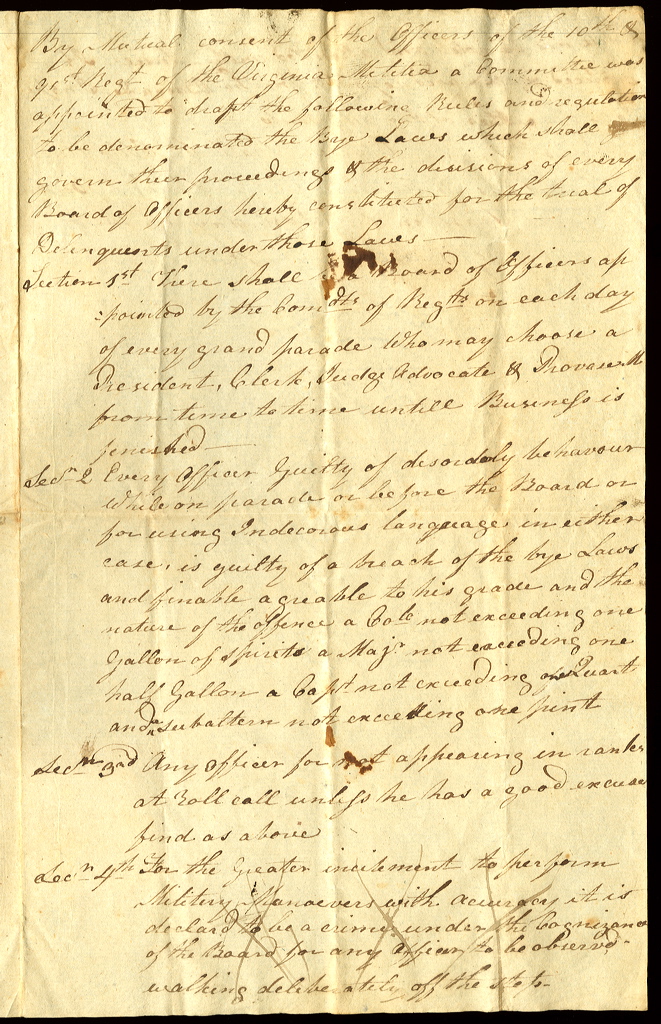 By Mutual consent of the Officers of the 10th &
91st Regt of the Virginia Militia a Committee was
appointed to draft the following Rules and regulation
to be denominated the Bye Laws which shall
govern their proceedings & the divisions of every
Board of Officers hereby constituted for the trial of
Delinquents under those Laws —
Section 1st There shall Board of Officers ap
pointed by the Comdts of Regts on each day
of every grand parade Who may choose a
President, Clerk, Judge Advocate & Provase M
from time to time untill Business is
finished —
Secn 2 Every Officer Guilty of desordoly behavour
While on parade or before the Board or
for using Indecorous language in either
case, is guilty of a breach of the bye Laws
and finable agreable to his grade and the
nature of the offence a Colo not exceeding one
Gallon of spirits a Majr not exceeding one
half Gallon a Capt not exceeding one Quart
and a subaltern not exceeding one pint
Secn 3rd Any Officer for not appearing in ranks
at Roll call unless he has a good excuse
find as above
Secn 4th For the Greater incitement to perform
Military Manoevers with accuracy it is
declard to be a crime under the Cognizance
of the Board for any Officer to be observd
walking deliberately off the step-